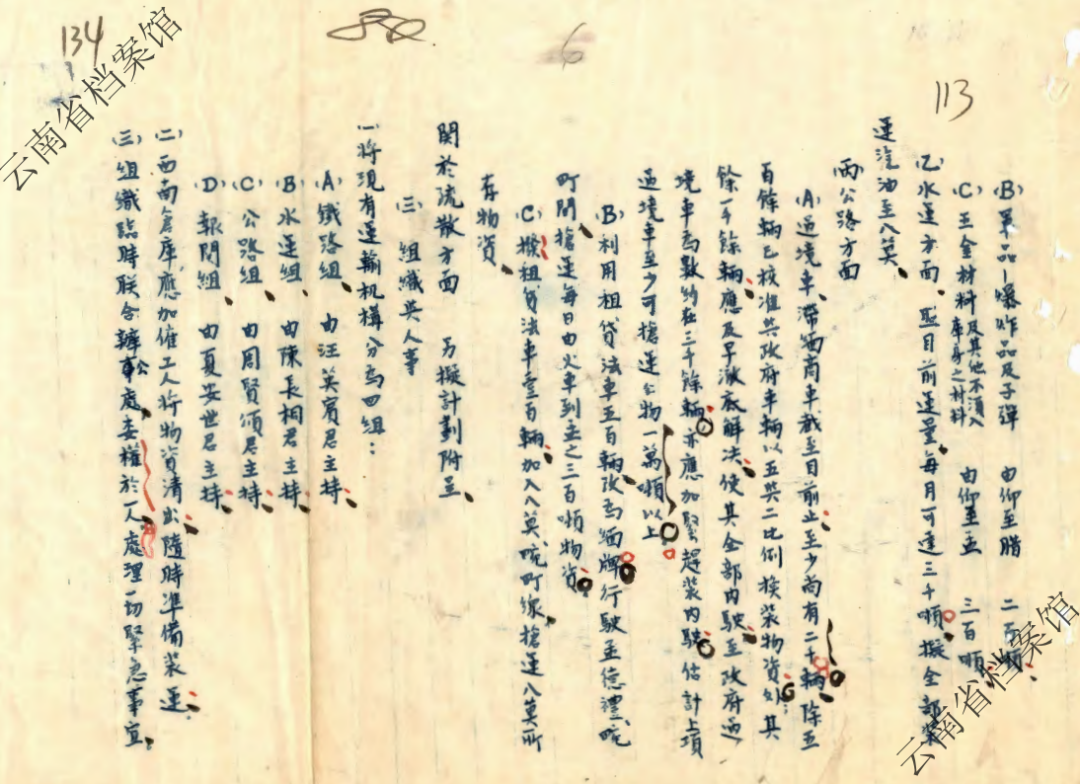 134
6
113
(B)軍品—爆炸品及子彈 由仰至腊 二百噸
(C)五金材料及其他不須入庫身之材料 由仰至孟 三百噸
(乙)水運方面、照目前運量、每月可達三千噸、擬全部
運汽油至八莫、
丙公路方面
(A)過境車、滯商車截至目前止、至少尚有二千輛、除五
百餘輛已核准與政府車輛以五與二比例換裝物資外、其
餘一千餘輛、應及早澈底解決、使其全部內駛、至政府過
境車為數約在三千餘輛、亦應加緊趕裝內駛、估計上項
過境車至少可搶運公物一萬噸以上
(B)利用租貸法車五百輛、改為緬牌行駛孟德禮、畹
町間、搶運每日由火車到孟之三百噸物資
(C)撥租貸法車壹百輛、加入八莫、畹町線、搶運八莫所
存物資、
關於流散方面 另擬計劃附呈、
(三) 組織與人事
一將現有運輸机構分為四組：
(A)鐵路組、 由汪英賓君主持、
(B)水運組、 由陳長桐君主持、
(C)公路組、 由周賢頌君主持、
(D)報關組、 由夏安世君主持、
(二)西南倉庫、應加催工人將物資清出、隨時準備裝運、
(三)組織臨時联合辦公處、委權於一人、處理一切緊急事宜、
云南省档案馆
云南省档案馆